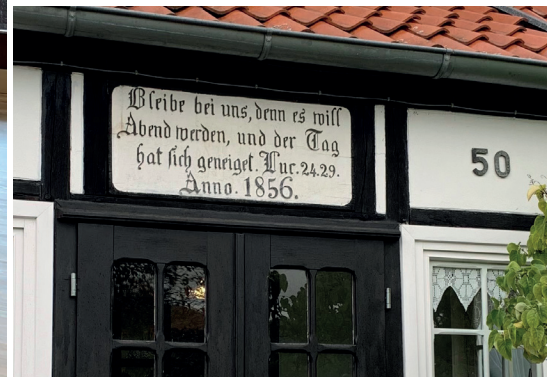 Bleibe bei uns, denn es will
Abend werden, und der Tag
hat sich geneiget. Luc. 24.29.
Anno. 1856.
50